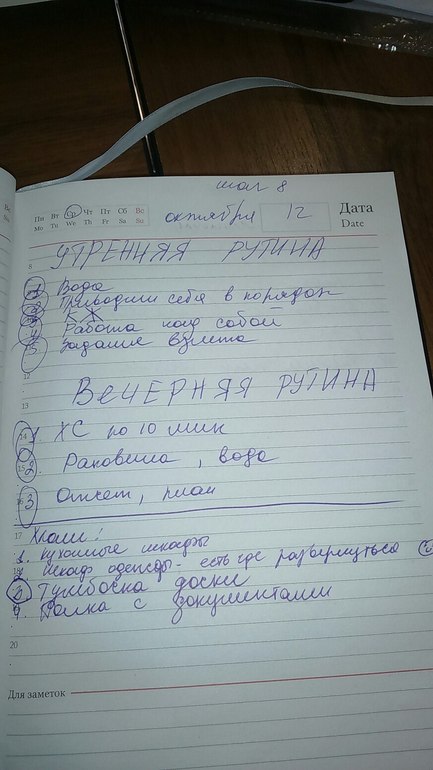 шаг 8
Пн Вт Ср Чт Пт Сб Вс
Mo Tu We Th Fr Sa Su
октября 12
Дата
Date
8 УТРЕННЯЯ РУТИНА
1 Вода
2 Приводим себя в порядок
3
4 Работа над собой
5 Задания взлета
12
ВЕЧЕРНЯЯ РУТИНА
13
14 1. ХС по 10 мин
15 2. Раковина, вода
16 3 Отчет, план
17
1. кухонные шкафы
18 2. шкаф одежды - есть где развернуться
3. Тумбочка доски
4. Полка с документами
20
Для заметок